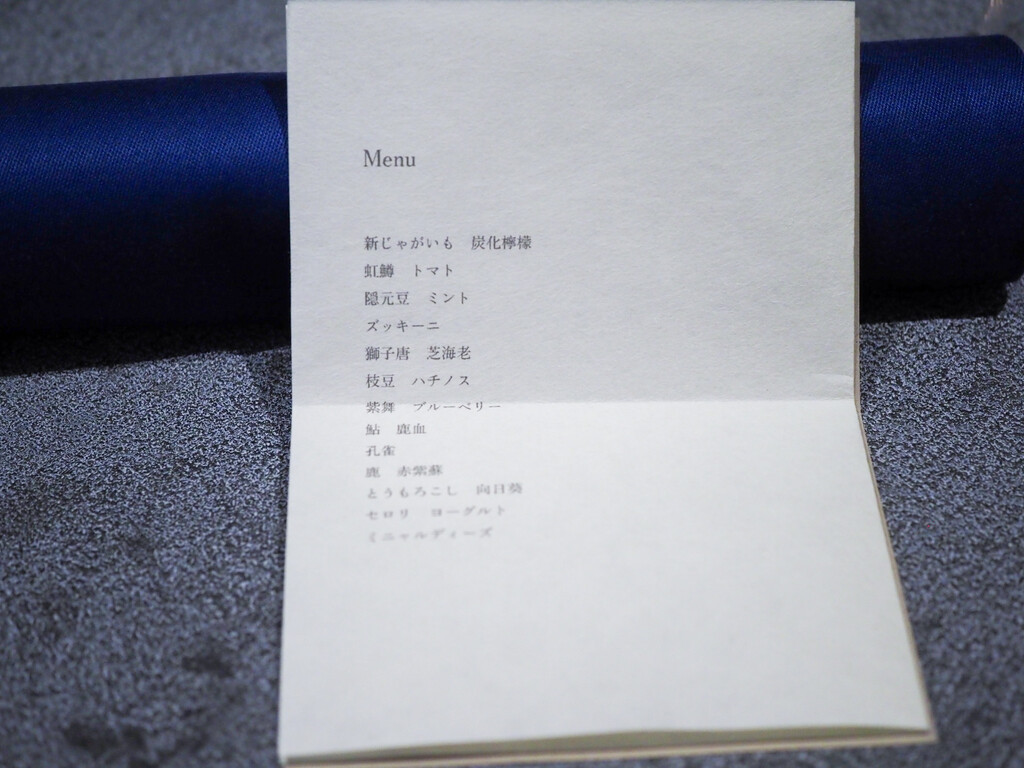 Menu
新じゃがいも　炭化檸檬
虹鱒　トマト
隠元豆　ミント
ズッキーニ
獅子唐　芝海老
枝豆　ハチノス
紫舞　ブルーベリー
鮎　鹿血
孔雀
鹿　赤紫蘇
とうもろこし　向日葵
セロリ　ヨーグルト
ミニャルディーズ